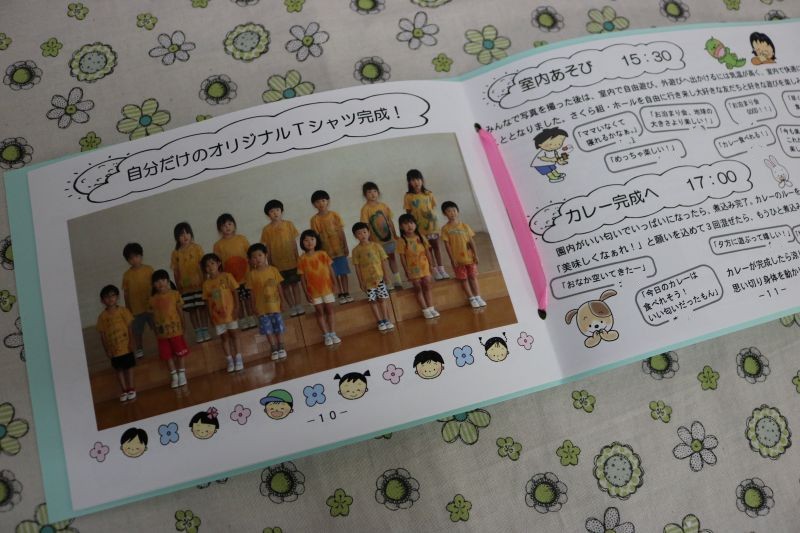 自分だけのオリジナルTシャツ完成！
－10－
室内あそび　15：30
みんなで写真を撮った後は、室内で自由遊び、外遊びへ出かけるには気温が高く、室内で快適に
ことになりました。さくら組・ホールを自由に行き来し大好きな友だちと好きな遊びを楽しみ
「ママいなくて
寝れるかなぁ。」
「お泊まり会、地球の
大きさより楽しい！」
「お泊まり会
「めっちゃ楽しい！」
「カレー食べれる！」
カレー完成へ　17：00
園内がいい匂いでいっぱいになったら、煮込み完了。カレーのルーを
「美味しくなぁれ！」と願いを込めて3回混ぜたら、もうひと煮込み
「おなか空いてきたー」
「夕方に遊ぶって嬉しい！」
「今日のカレーは
食べれそう！
いい匂いだったもん」
カレーが完成したら涼し
思い切り身体を動か
－11－